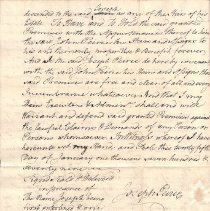 Joseph
descended to the said or any of this heir of his
Estate. To Have and To Hold the said granted
Premises with the Appurtenances thereof to him
the said John his Heirs and Assigns to
his and their only Use & Benefit forever
And I the said Joseph Pierce do hereby covenant
with the said John his Heirs and Assigns that
said Premises are free and clear of and every
Incumbrance whatsoever And that I my
Heirs Executors Administrators shall and will
Warrant and defend said granted Premises against
the lawful Claims & Demands of any Person or
Persons whomsoever. In Witness whereof I have
hereunto set my Hand and Seal this twenty fifth
Day of January one thousand seven hundred &
seventy nine
Signed Sealed & Delivered
in presence of
The Name Joseph being
first interlined
Joseph Pierce